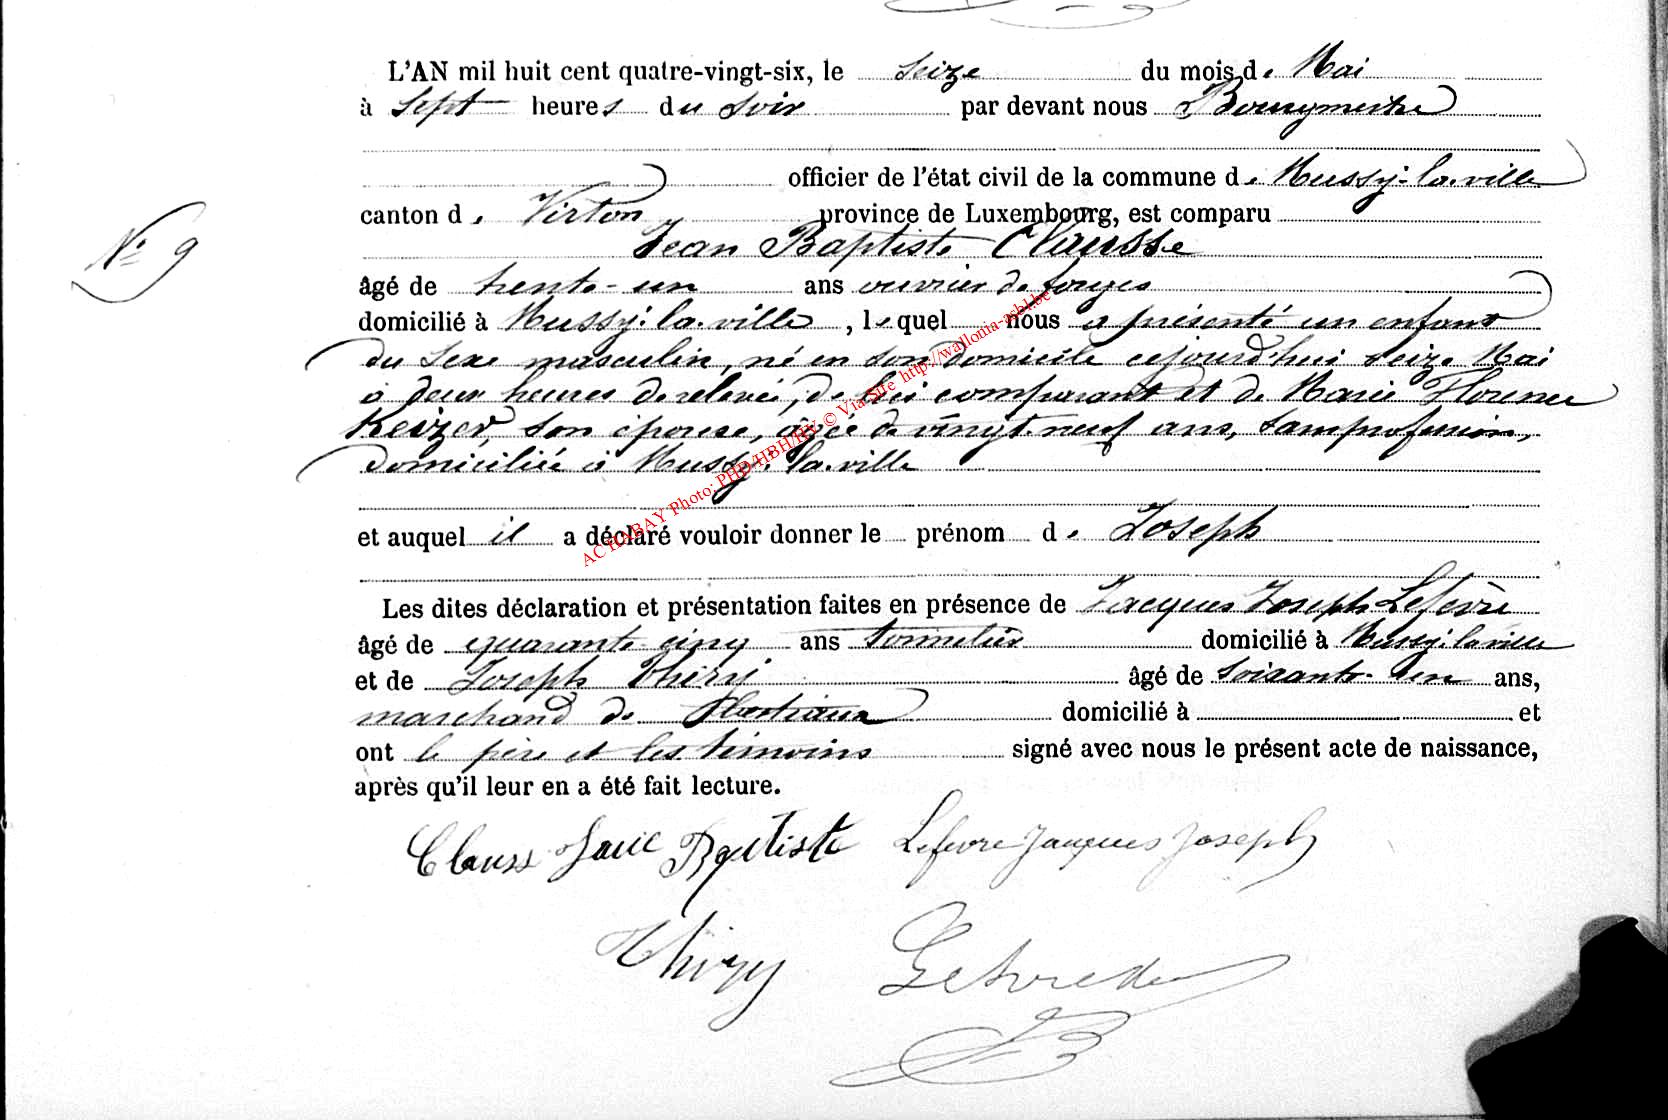 L'AN mil huit cent quatre-vingt-six, le seize du mois de Mai
à Sept heures du soir par devant nous Bourgmestre
officier de l'état civil de la commune de Mussy-la-ville
canton de Virton province de Luxembourg, est comparu
Jean Baptiste Clausse
N° 9
âgé de trente-un ans ouvrier de forges
domicilié à Mussy-la-ville, lequel nous a présenté un enfant
du sexe masculin, né en son domicile cejourd'hui seize Mai
à deux heures de relevée, de lui comparant et de Marie Florence
Keizer, son épouse, âgée de vingt-neuf ans, sans profession,
domiciliée à Mussy-la-ville
et auquel il a déclaré vouloir donner le prénom de Joseph
Les dites déclaration et présentation faites en présence de Jacques Joseph Lefèvre
âgé de quarante-cinq ans tonnelier domicilié à Mussy-la-ville
et de Joseph Thiry âgé de soixante-un ans,
marchand de domicilié à et
ont le père et les témoins signé avec nous le présent acte de naissance,
après qu'il leur en a été fait lecture.
Clauss Baptiste Lefevre Jacques Joseph
Thiry
AC HABAY Photo: PHD/HBH/HV © Via Site http://wallonia-asbl.be